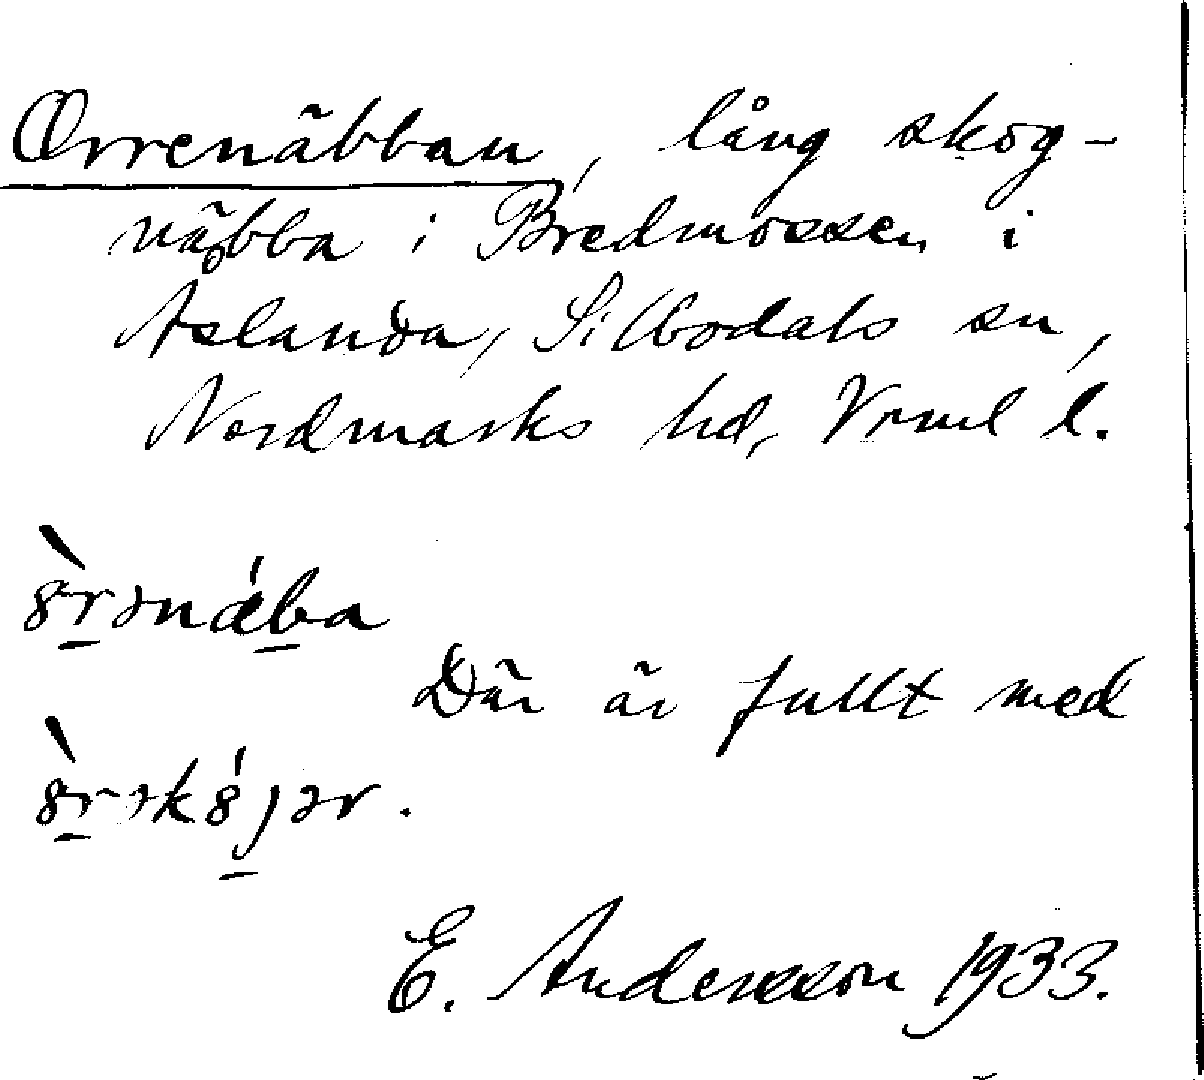 Orrenäbban, lång skog-
näbba i Bredmossen i
Åslanda, Silbodals sn,
Nordmarks hd, Vrml l.
òrənǽba
Där är fullt med
òrəkójər.
E. Andersson 1933.